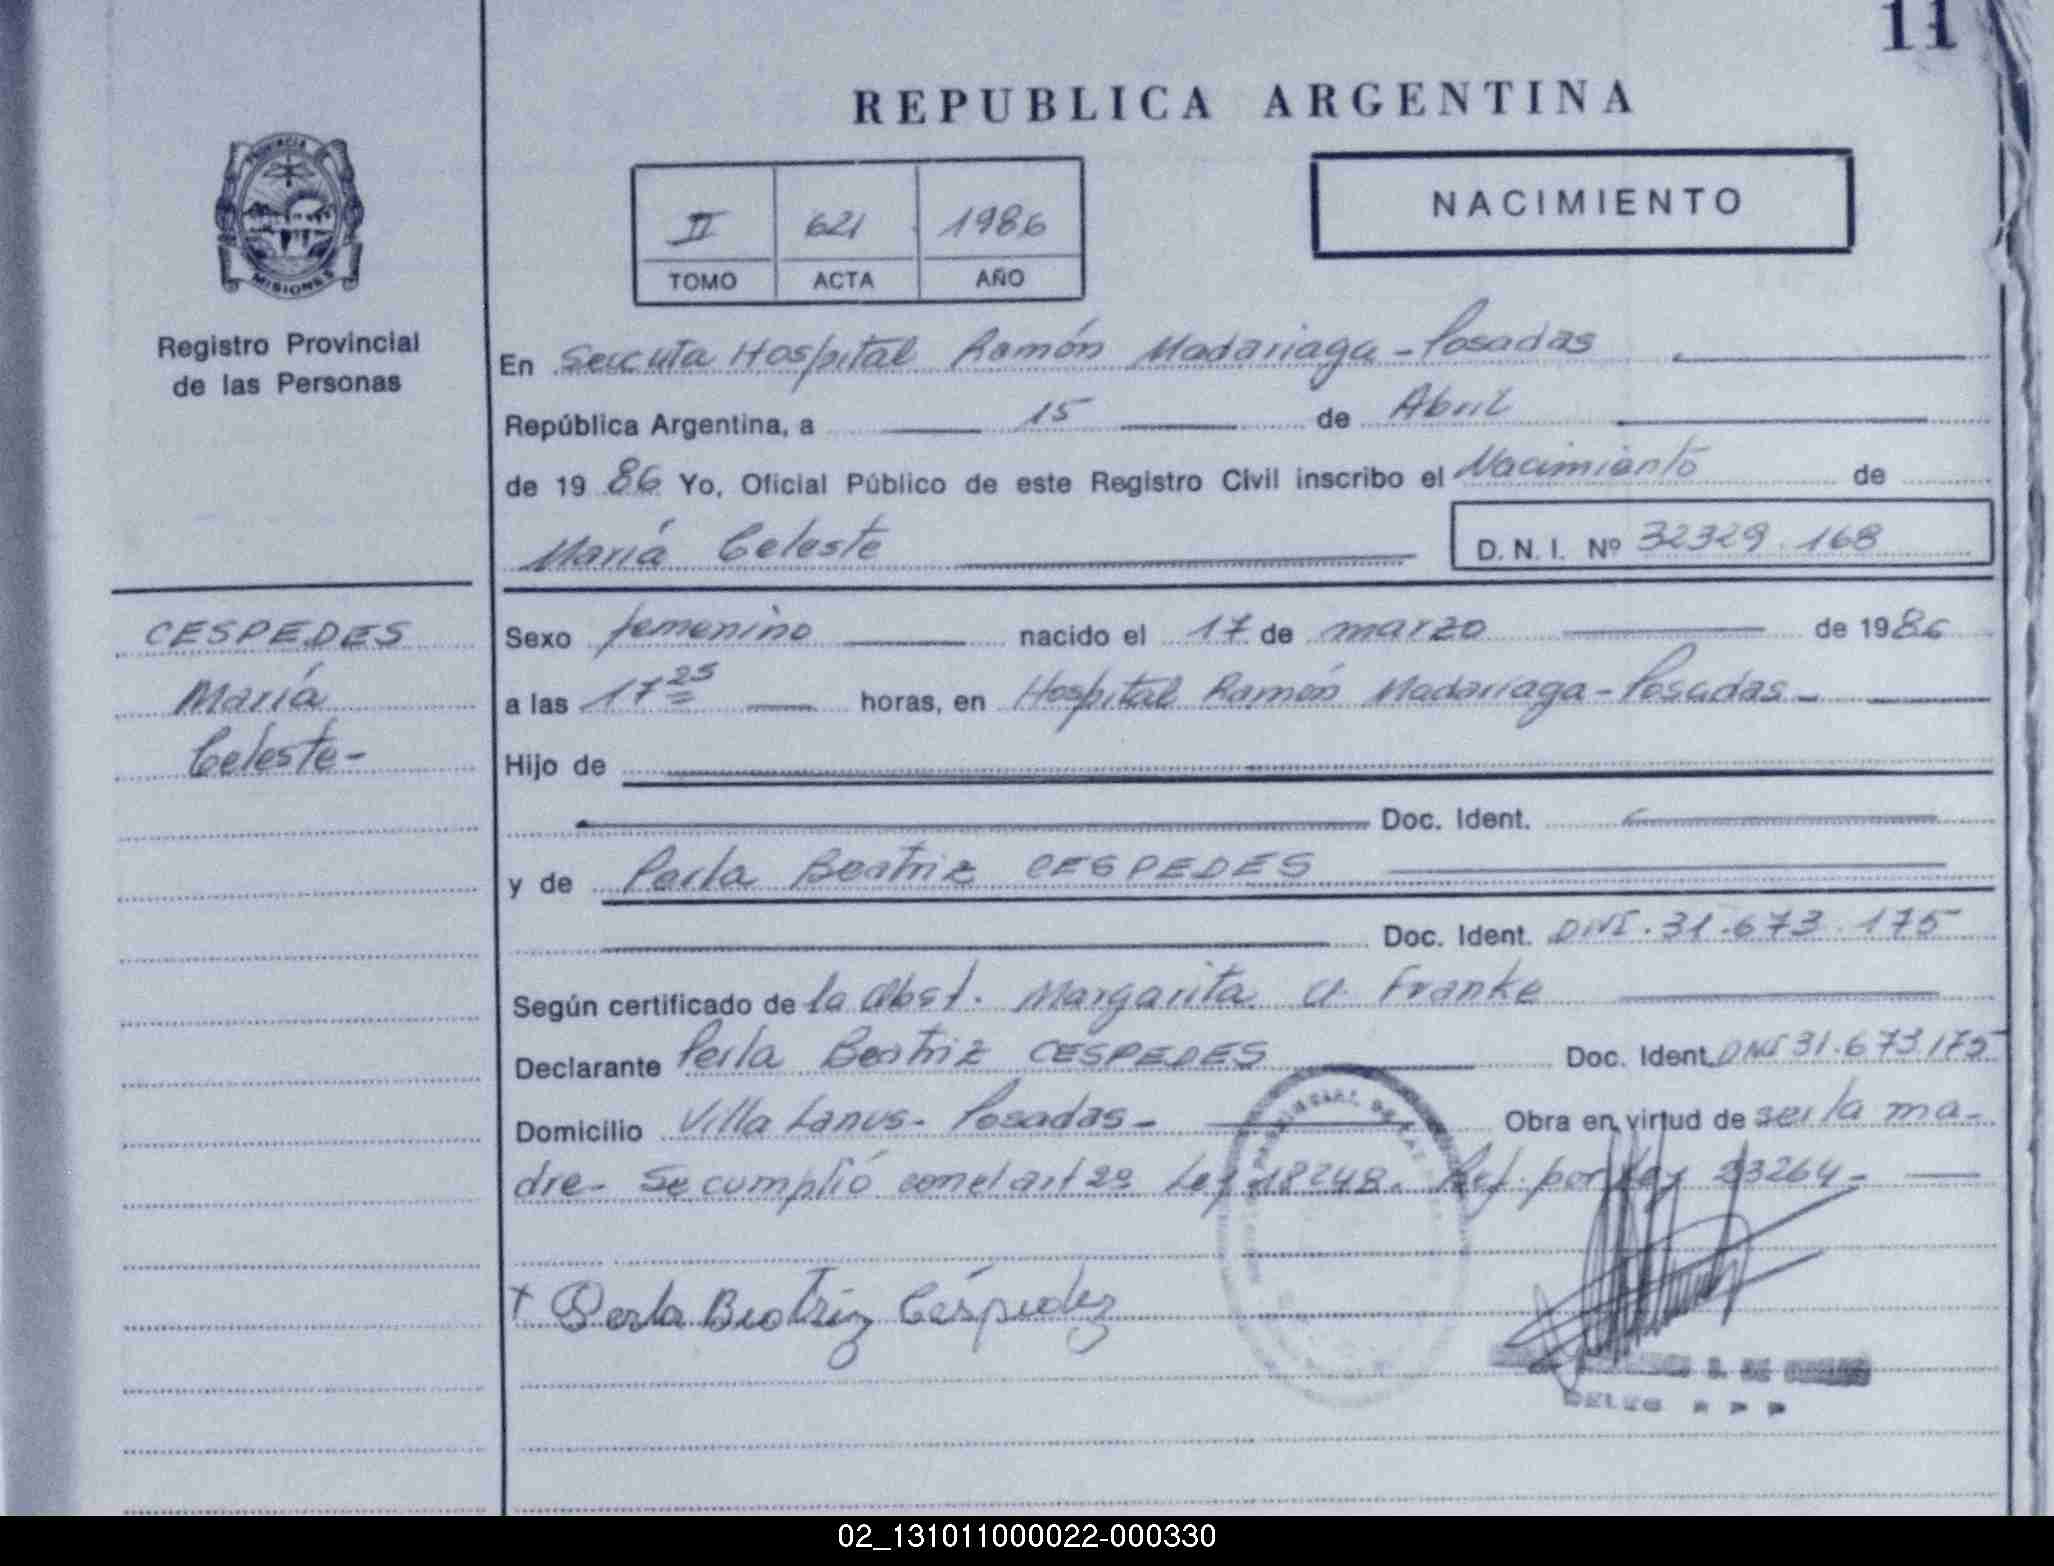 11
REPUBLICA ARGENTINA
PROVINCIA DE
MISIONES
Registro Provincial
de las Personas
II 621 1986
TOMO ACTA AÑO
NACIMIENTO
En Seccuta Hospital Ramón Madariaga - Posadas
República Argentina, a 15 de Abril
de 19 86 Yo, Oficial Público de este Registro Civil inscribo el Nacimiento de
María Celeste D. N. I. Nº 32329.168
CESPEDES
María
Celeste-
Sexo femenino nacido el 17 de marzo de 1986
a las 17 25 horas, en Hospital Ramón Madariaga - Posadas -
Hijo de
Doc. Ident.
y de Perla Beatriz CESPEDES
Doc. Ident. DNI. 31.673.175
Según certificado de la Obst. Margarita A. Franke
Declarante Perla Beatriz CESPEDES Doc. Ident. DNI 31.673.175
Domicilio Villa Lanus - Posadas - Obra en virtud de ser la ma-
dre - Se cumplió con el art 2º Ley 18248. Ref. por Ley 23264 -
+ Perla Beatriz Céspedez
02_131011000022-000330